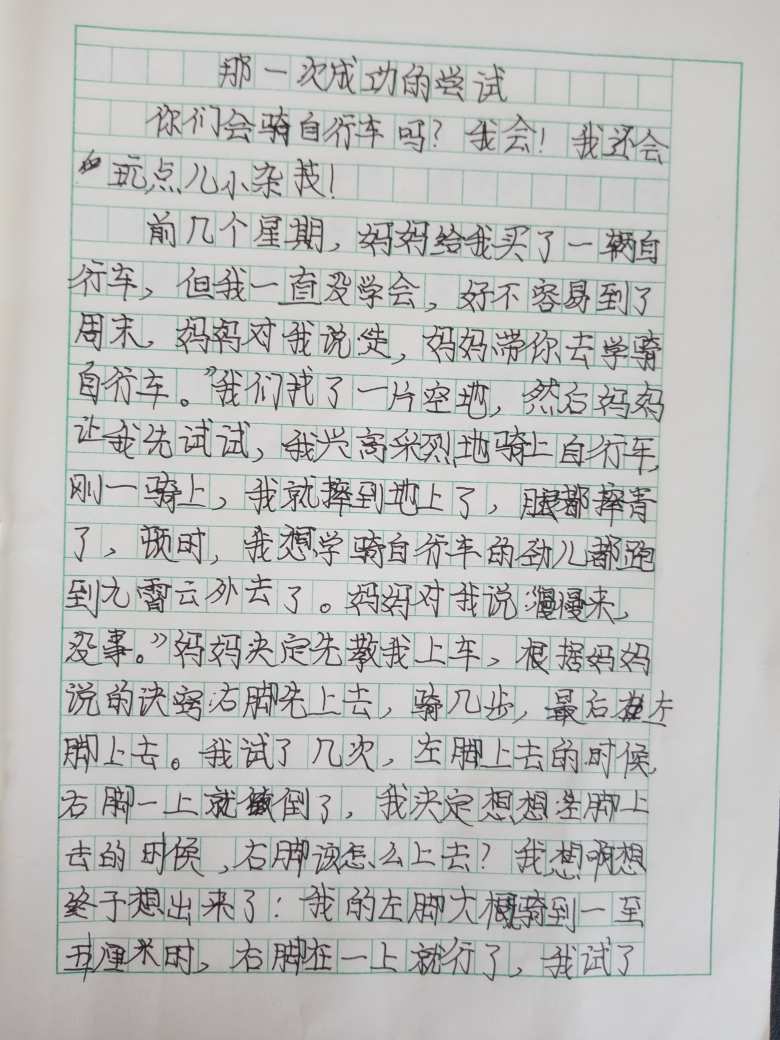 那一次成功的尝试
你们会骑自行车吗？我会！我还会
玩点儿小杂技！
前几个星期，妈妈给我买了一辆自
行车，但我一直没学会，好不容易到了
周末，妈妈对我说，妈妈带你去学骑
自行车。”我们找了一片空地，然后妈妈
让我先试试，我兴高采烈地骑上自行车，
刚一骑上，我就摔到地上了，腿都摔青
了，顿时，我想学骑自行车的劲儿都跑
到九霄云外去了。妈妈对我说慢慢来，
没事。”妈妈决定先教我上车，根据妈妈
说的诀窍：右脚先上去，骑几步，最后在左
脚上去。我试了几次，左脚上去的时候，
右脚一上就倒了，我决定想想左脚上
去的时候，右脚该怎么上去？我想啊想
终于想出来了：我的左脚大概骑到一至
五厘米时，右脚在一上就行了，我试了